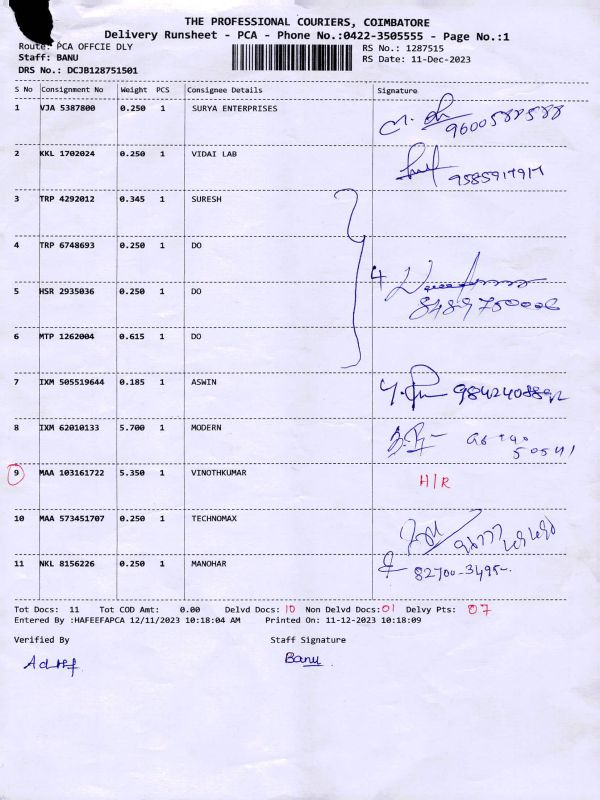 THE PROFESSIONAL COURIERS, COIMBATORE
Delivery Runsheet - PCA - Phone No.:0422-3505555 - Page No.:1
Route: PCA OFFCIE DLY
RS No.: 1287515
Staff: BANU
RS Date: 11-Dec-2023
DRS No.: DCJB128751501
S No Consignment No Weight PCS Consignee Details Signature
1 VJA 5387800 0.250 1 SURYA ENTERPRISES
2 KKL 1702024 0.250 1 VIDAI LAB
3 TRP 4292012 0.345 1 SURESH
4 TRP 6748693 0.250 1 DO
4
5 HSR 2935036 0.250 1 DO
6 MTP 1262004 0.615 1 DO
7 IXM 505519644 0.185 1 ASWIN
8 IXM 62010133 5.700 1 MODERN
9 MAA 103161722 5.350 1 VINOTHKUMAR H/R
10 MAA 573451707 0.250 1 TECHNOMAX
11 NKL 8156226 0.250 1 MANOHAR
Tot Docs: 11 Tot COD Amt: 0.00 Delvd Docs: 10 Non Delvd Docs: 01 Delvy Pts: 07
Entered By :HAFEEFAPCA 12/11/2023 10:18:04 AM Printed On: 11-12-2023 10:18:09
Verified By Staff Signature
Banu